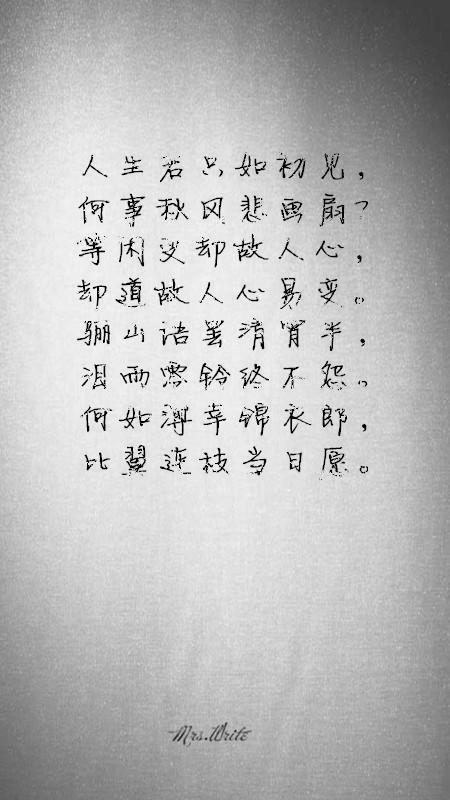 人生若只如初见，
何事秋风悲画扇？
等闲变却故人心，
却道故人心易变。
骊山语罢清宵半，
泪雨零铃终不怨。
何如薄幸锦衣郎，
比翼连枝当日愿。
Mrs.Write